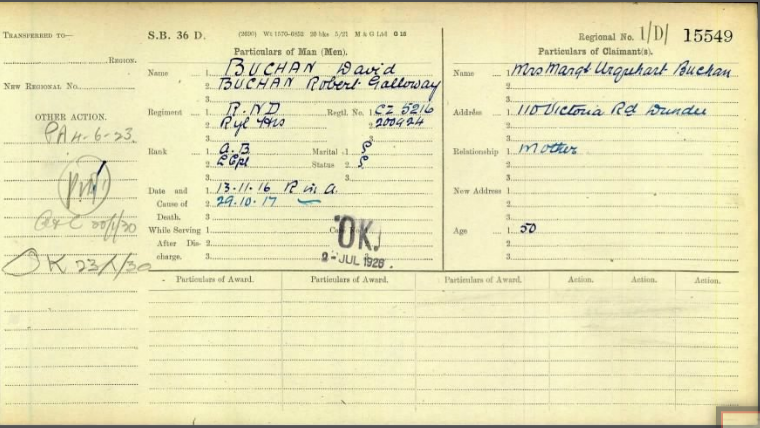 TRANSFERRED TO—
REGION.
NEW REGIONAL No.
OTHER ACTION.
PA 4-6-23.
OK 23/1/30
S.B. 36 D.
Particulars of Man (Men).
Name 1. BUCHAN David
2. BUCHAN Robert Galloway
3.
Regiment 1. R.N.D Regtl. No. 1 CZ 5216
2. Ryl Hrs 2 200924
3. 3
Rank 1. A.B Marital 1. S
2. LCpl Status 2. S
3. 3
Date and 1. 13.11.16 K in A.
Cause of 2. 29.10.17
Death. 3.
While Serving 1.
After Dis- 2.
charge. 3.
OK
2-JUL 1926.
Regional No. 1/D/ 15549
Particulars of Claimant(s).
Name 1. Mrs Margt Urquhart Buchan
2.
3.
Address 1. 110 Victoria Rd Dundee
2.
3.
Relationship 1. Mother
2.
3.
New Address 1.
2.
3.
Age 1. 50
2.
3.
Particulars of Award. Particulars of Award. Particulars of Award. Action. Action. Action.